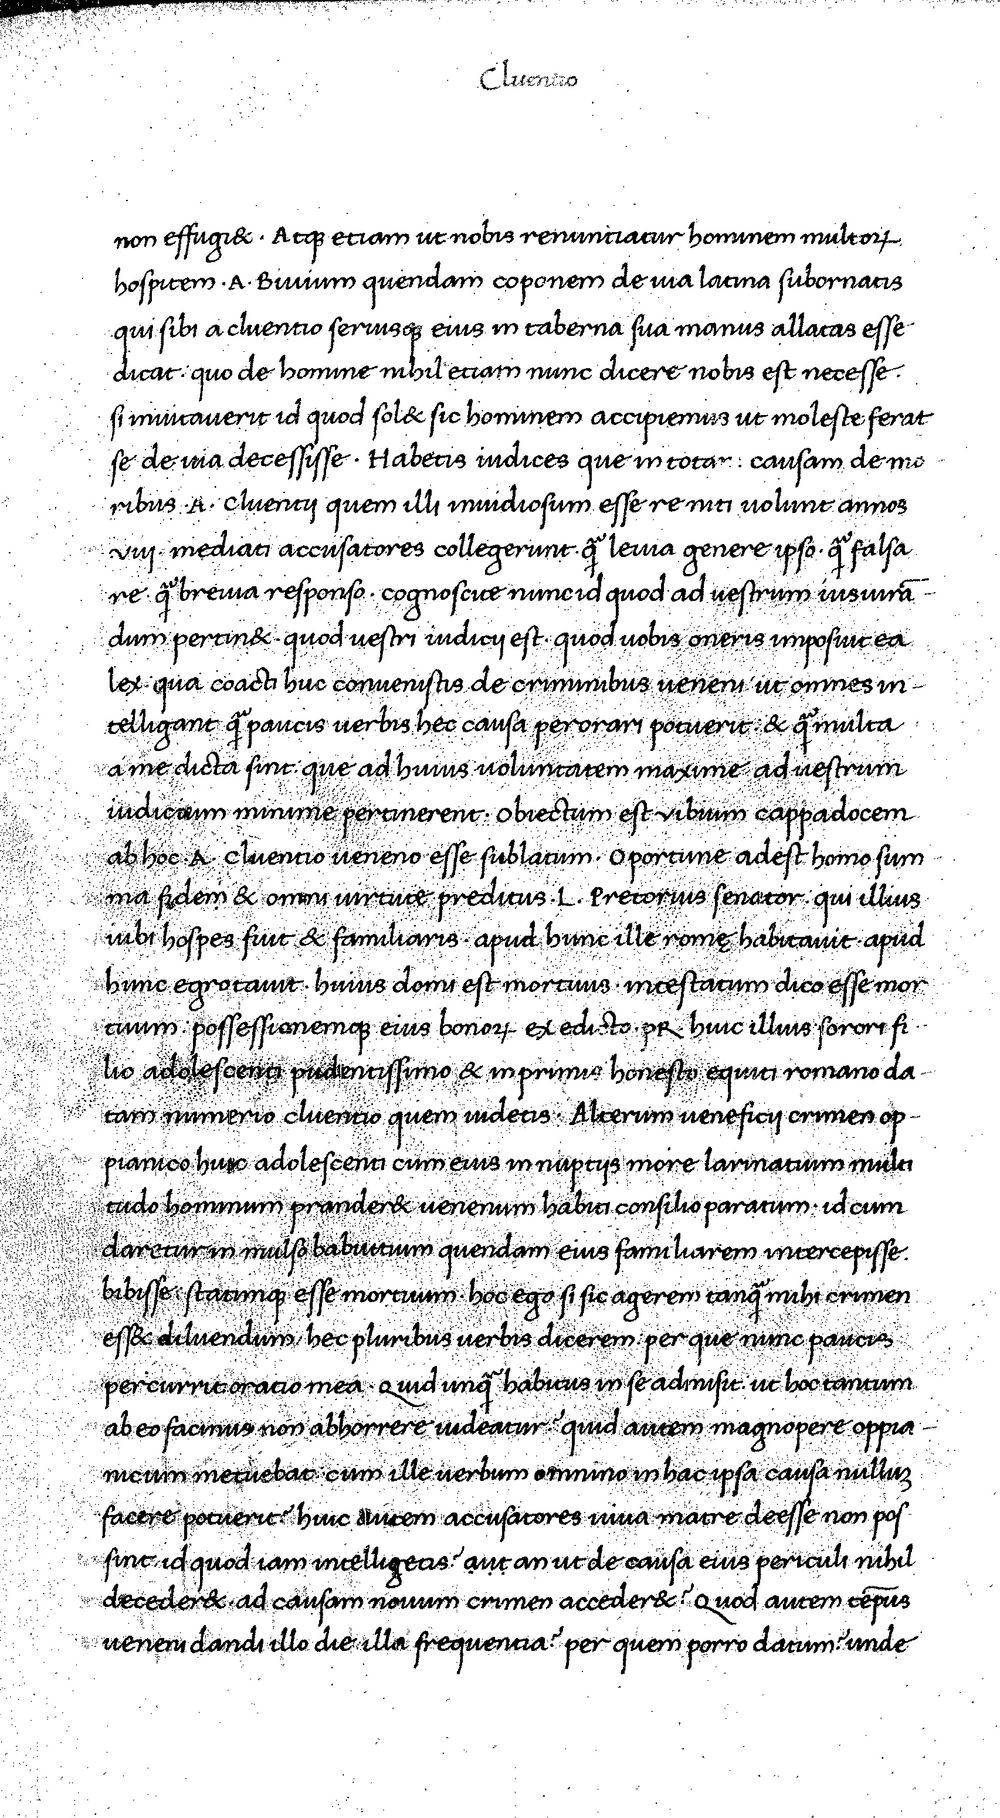 Cluentio
non effugi& · Atqꝫ etiam ut nobis renuntiatur hominem multoꝝ
hospitem · A · Biuium quendam coponem de uia latina subornatis
qui sibi a cluentio seruisqꝫ eius in taberna sua manus allatas esse
dicat · quo de homine nihil etiam nunc dicere nobis est necesse ·
si inuitauerit id quod sol& sic hominem accipiemus ut moleste ferat
se de uia decessisse · Habetis iudices que in totam : causam de mo
ribus · A · Cluentij quem illi inuidiosum esse re niti uolunt annos
viij · mediati accusatores collegerunt · qᷓ leuia genere ipso · qᷓ falsa
re qᷓ breuia responso · cognoscite nunc id quod ad uestrum iusiurā-
dum pertin& · quod uestri iudicij est · quod uobis oneris imposuit ea
lex · qua coacti huc conuenistis de criminibus ueneni ut omnes in-
telligant qᷓ paucis uerbis hec causa perorari potuerit · & qᷓ multa
a me dicta sint · que ad huius uoluntatem maxime · ad uestrum
iudicium minime pertinerent · Obiectum est vibium cappadocem
ab hoc · A · Cluentio ueneno esse sublatum · Oportune adest homo sum
ma fidem & omni uirtute preditus · L · Pretorius senator · qui illius
iubi hospes fuit & familiaris · apud hunc ille romę habitauit · apud
hunc egrotauit · huius domi est mortuus · intestatum dico esse mor
tuum · possessionemqꝫ eius bonoꝝ ex edicto · PR · huic illius sorori fi
lio adolescenti pudentissimo & in primis honesto equiti romano da-
tam numerio cluentio quem uidetis · Alterum ueneficij crimen op-
pianico huic adolescenti cum eius in nuptijs more larinatium multi
tudo hominum prander& uenenum habiti consilio paratum · id cum
daretur in mulso babuitium quendam eius familiarem intercepisse ·
bibisse · statimqꝫ esse mortuum · hoc ego si sic agerem tanqᷓ mihi crimen
ess& diluendum / hec pluribus uerbis dicerem · per que nunc paucis
percurrit oratio mea · Quid unqᷓ habitus in se admisit · ut hoc tantum
ab eo facinus non abhorrere uideatur ? quid autem magnopere oppia-
nicum metuebat · cum ille uerbum omnino in hac ipsa causa nulluꝫ
facere potuerit ? huic autem accusatores uiua matre deesse non pos
sint · id quod iam intelligetis ? aut an ut de causa eius periculi nihil
deceder& · ad causam nouum crimen acceder& ? Quod autem tēpus
ueneni dandi illo die illa frequentia ? per quem porro datum ? unde